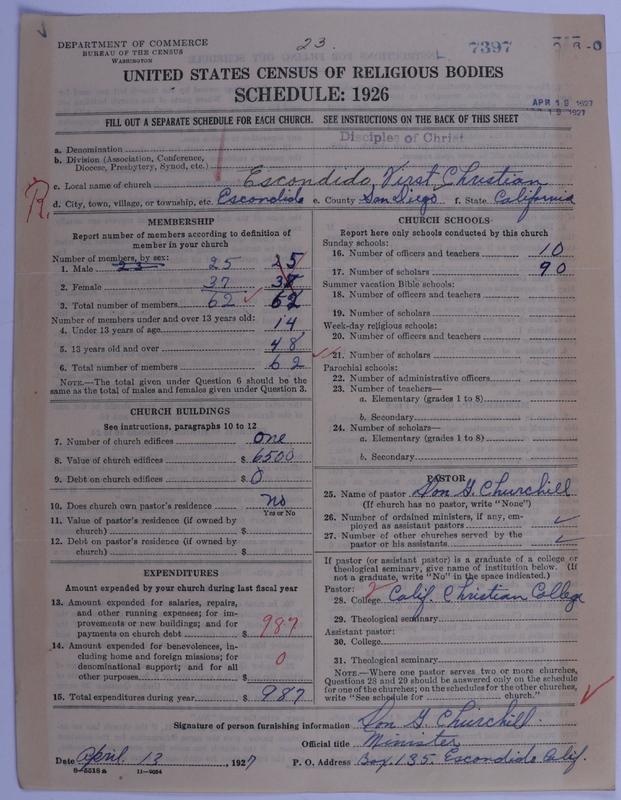 DEPARTMENT OF COMMERCE
BUREAU OF THE CENSUS
WASHINGTON
23.
7397
UNITED STATES CENSUS OF RELIGIOUS BODIES
SCHEDULE: 1926
APR 19 1927
FILL OUT A SEPARATE SCHEDULE FOR EACH CHURCH. SEE INSTRUCTIONS ON THE BACK OF THIS SHEET
Disciples of Christ
a. Denomination
b. Division (Association, Conference, Diocese, Presbytery, Synod, etc.)
c. Local name of church Escondido, First Christian
d. City, town, village, or township, etc. Escondido e. County San Diego f. State California
R.
MEMBERSHIP
Report number of members according to definition of member in your church
Number of members, by sex:
1. Male 25 25 25
2. Female 37 37
3. Total number of members 62 62
Number of members under and over 13 years old:
4. Under 13 years of age 14
5. 13 years old and over 48
6. Total number of members 62
NOTE.—The total given under Question 6 should be the same as the total of males and females given under Question 3.
CHURCH BUILDINGS
See instructions, paragraphs 10 to 12
7. Number of church edifices One
8. Value of church edifices $ 6500
9. Debt on church edifices $ 0
10. Does church own pastor's residence No
Yes or No
11. Value of pastor's residence (if owned by church) $
12. Debt on pastor's residence (if owned by church) $
EXPENDITURES
Amount expended by your church during last fiscal year
13. Amount expended for salaries, repairs, and other running expenses; for improvements or new buildings; and for payments on church debt $ 987
14. Amount expended for benevolences, including home and foreign missions; for denominational support; and for all other purposes $ 0
15. Total expenditures during year $ 987
CHURCH SCHOOLS
Report here only schools conducted by this church
Sunday schools:
16. Number of officers and teachers 10
17. Number of scholars 90
Summer vacation Bible schools:
18. Number of officers and teachers
19. Number of scholars
Week-day religious schools:
20. Number of officers and teachers
21. Number of scholars
Parochial schools:
22. Number of administrative officers
23. Number of teachers—
a. Elementary (grades 1 to 8)
b. Secondary
24. Number of scholars—
a. Elementary (grades 1 to 8)
b. Secondary
PASTOR
25. Name of pastor Don G. Churchill
(If church has no pastor, write "None")
26. Number of ordained ministers, if any, employed as assistant pastors
27. Number of other churches served by the pastor or his assistants
If pastor (or assistant pastor) is a graduate of a college or theological seminary, give name of institution below. (If not a graduate, write "No" in the space indicated.)
Pastor:
28. College Calif. Christian College
29. Theological seminary
Assistant pastor:
30. College
31. Theological seminary
NOTE.—Where one pastor serves two or more churches, Questions 28 and 29 should be answered only on the schedule for one of the churches; on the schedules for the other churches, write "See schedule for church."
Signature of person furnishing information Don G. Churchill.
Official title Minister
Date April 13, 1927 P. O. Address Box 135. Escondido Calif.
8-5518a 11-9054